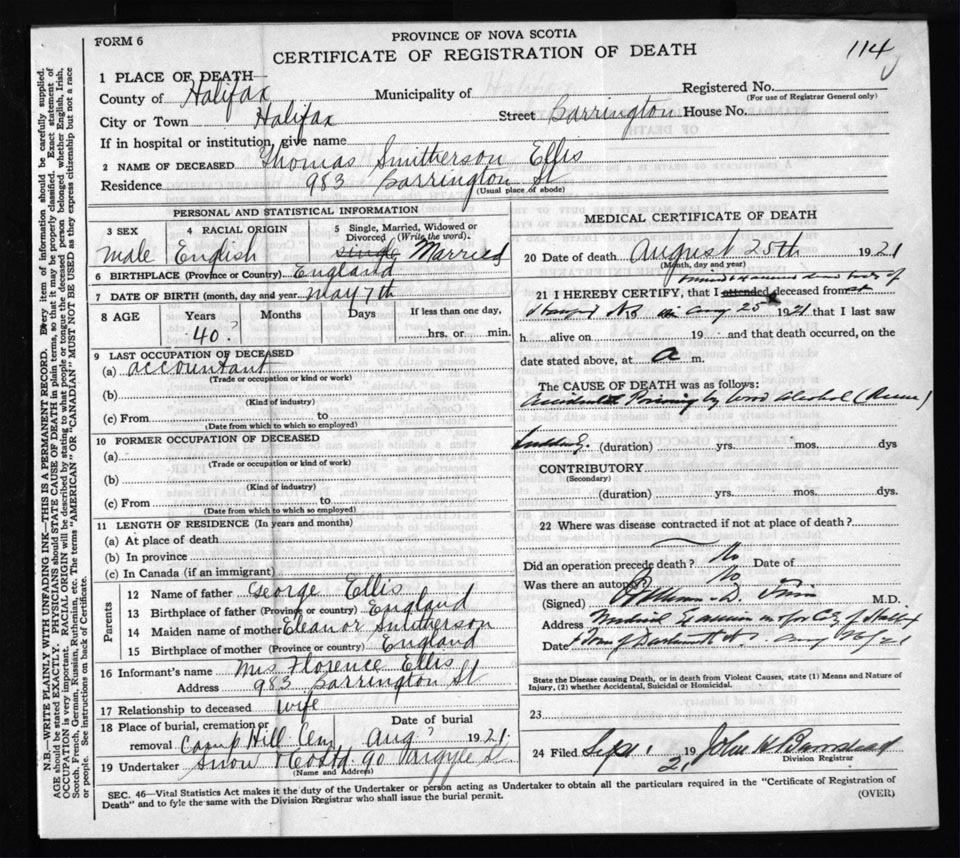 FORM 6
PROVINCE OF NOVA SCOTIA
CERTIFICATE OF REGISTRATION OF DEATH
114
1 PLACE OF DEATH—
County of Halifax Municipality of Registered No.
(For use of Registrar General only)
City or Town Halifax Street Barrington House No.
If in hospital or institution, give name
2 NAME OF DECEASED Thomas Smitherson Ellis
Residence 983 Barrington St
(Usual place of abode)
PERSONAL AND STATISTICAL INFORMATION
3 SEX 4 RACIAL ORIGIN 5 Single, Married, Widowed or
Divorced (Write the word).
male English single Married
6 BIRTHPLACE (Province or Country) England
7 DATE OF BIRTH (month, day and year) May 7th
8 AGE Years Months Days If less than one day,
40? hrs. or min.
9 LAST OCCUPATION OF DECEASED
(a) accountant
(Trade or occupation or kind or work)
(b)
(Kind of industry)
(c) From to
(Date from which to which so employed)
10 FORMER OCCUPATION OF DECEASED
(a)
(Trade or occupation or kind of work)
(b)
(Kind of industry)
(c) From to
(Date from which to which so employed)
11 LENGTH OF RESIDENCE (In years and months)
(a) At place of death
(b) In province
(c) In Canada (if an immigrant)
Parents
12 Name of father George Ellis
13 Birthplace of father (Province or country) England
14 Maiden name of mother Eleanor Smitherson
15 Birthplace of mother (Province or country) England
16 Informant's name Mrs Florence Ellis
Address 983 Barrington St
17 Relationship to deceased wife
18 Place of burial, cremation or Date of burial
removal Camp Hill Cem Aug? 1921
19 Undertaker Snow & Co Ltd 90 Argyle St
(Name and Address)
MEDICAL CERTIFICATE OF DEATH
20 Date of death August 25th 1921
(Month, day and year)
dead body of
21 I HEREBY CERTIFY, that I attended deceased from at
Aug 25 1921 that I last saw
h alive on 19 and that death occurred, on
date stated above, at a m.
The CAUSE OF DEATH was as follows:
Accidental Poisoning by Wood Alcohol
Suddenly. (duration) yrs. mos. dys
CONTRIBUTORY
(Secondary)
(duration) yrs. mos. dys.
22 Where was disease contracted if not at place of death?
Did an operation precede death? No Date of
Was there an autopsy No
(Signed) M.D.
Address Medical Examiner for City of Halifax
Date & Town of Dartmouth Aug 26/21
State the Disease causing Death, or in death from Violent Causes, state (1) Means and Nature of
Injury, (2) whether Accidental, Suicidal or Homicidal.
23
24 Filed Sept 1 1921 John H Barnstead
Division Registrar
SEC. 46—Vital Statistics Act makes it the duty of the Undertaker or person acting as Undertaker to obtain all the particulars required in the "Certificate of Registration of
Death" and to fyle the same with the Division Registrar who shall issue the burial permit. (OVER)
N.B.—WRITE PLAINLY WITH UNFADING INK—THIS IS A PERMANENT RECORD. Every item of information should be carefully supplied.
AGE should be stated EXACTLY. PHYSICIANS should STATE CAUSE OF DEATH in plain terms, so that it may be properly classified. Exact statement of
OCCUPATION is very important. RACIAL ORIGIN will be described by stating to what people or tongue the deceased person belonged, whether English, Irish,
Scotch, French, German, Russian, Ruthenian, etc. The terms "AMERICAN" OR "CANADIAN" MUST NOT BE USED as they express citizenship but not a race
or people. See instructions on back of Certificate.